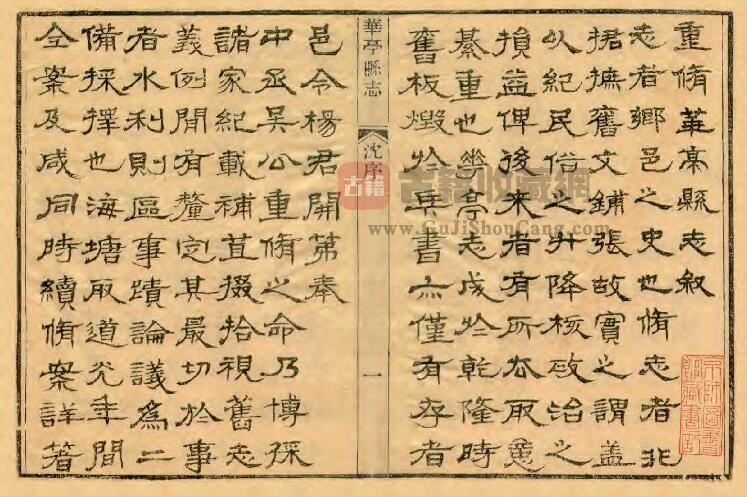 重脩華亭縣志敘
志者鄉邑之史也脩志者非
捃摭舊文鋪張故實之謂蓋
以紀民俗之升降核政治之
損益俾後来者有所去取意
綦重也華亭志成於乾隆時
舊板燬於兵書亦僅有存者
華亭縣志
沈序
一
邑令楊君開第奉
中丞吳公重脩之命乃博採
諸家紀載補苴掇拾視舊志
義例間有釐定其最切於事
者水利則區事蹟論議爲二
備採擇也海塘取道光年間
全案及咸同時續脩案詳著
古籍
古籍收藏網
www.GuJiShouCang.com